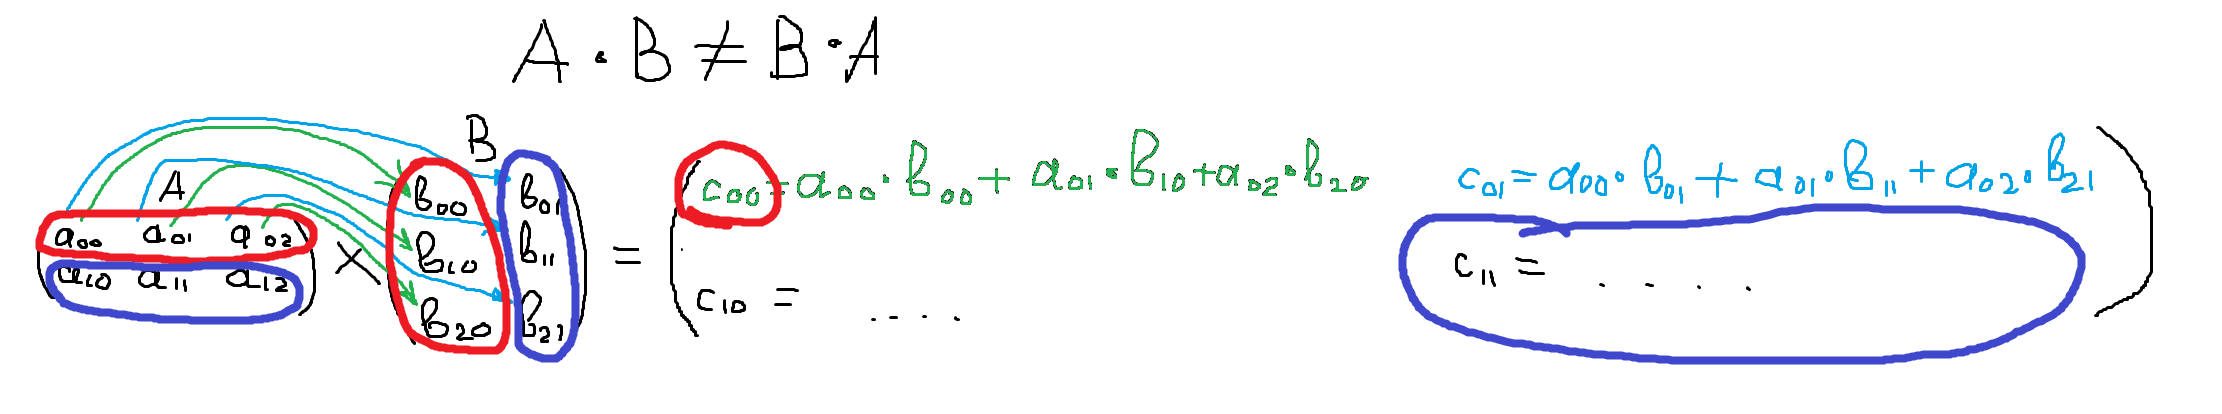 A · B ≠ B · A
B
A
b00 b01
a00 a01 a02 b10 b11
a10 a11 a12 × b20 b21 =
c00 = a00 · b00 + a01 · b10 + a02 · b20 c01 = a00 · b01 + a01 · b11 + a02 · b21
c10 = .... c11 = ....